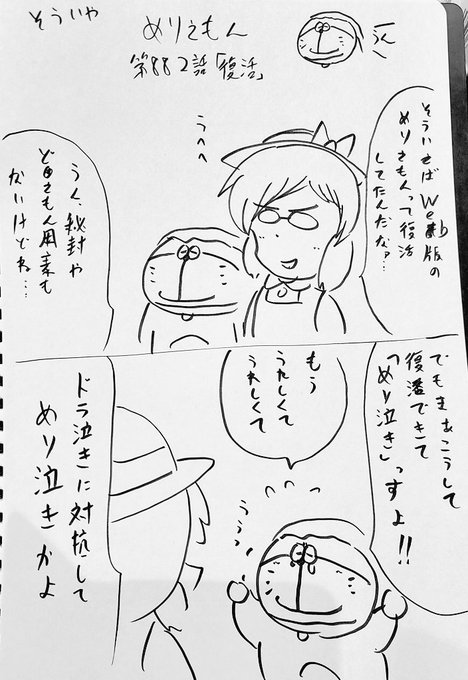 そういや
めりえもん
第882話「復活」
うん
そういえばWeb版の
めりえもんって復活
してたんだなァ…
うへへ
うん、秘封や
どらえもん用素も
ないけどね…
でもまあこうして
復活できて
「めり泣き」っすよ!!
もう
うれしくて
うれしくて
ううっ
ドラ泣きに対抗して
めり泣きかよ